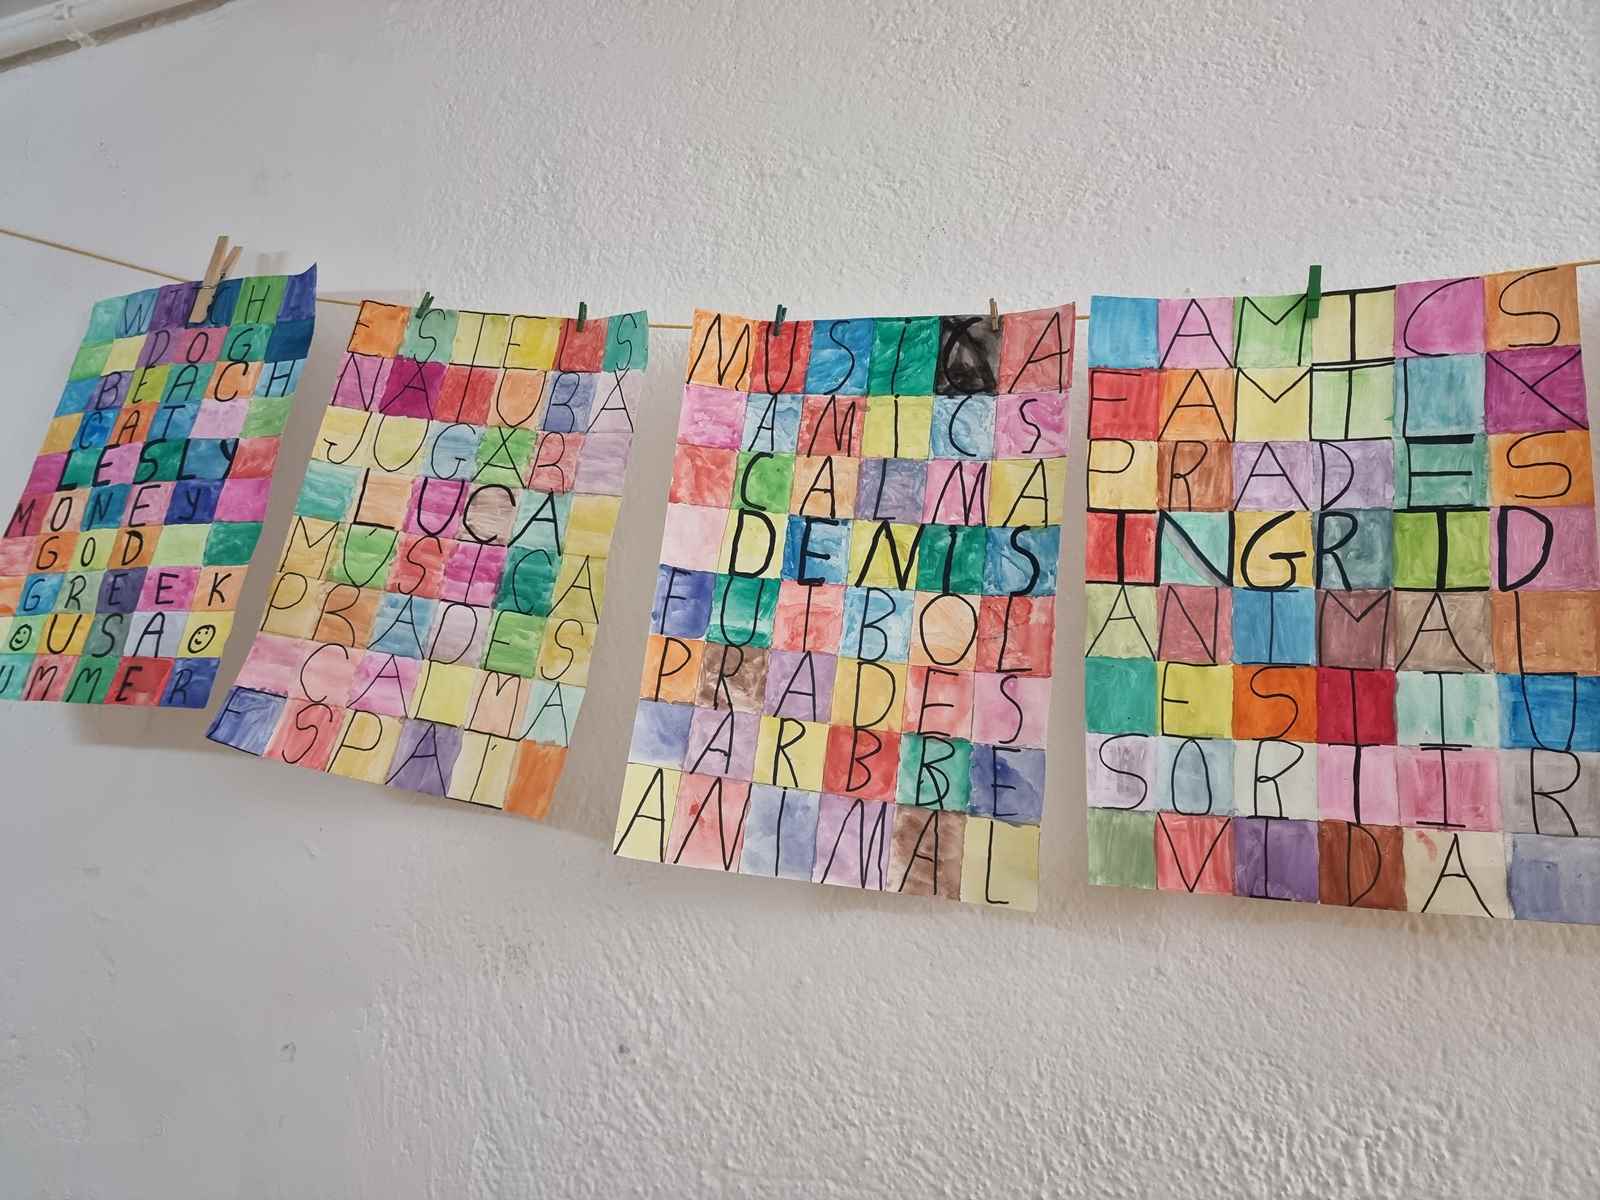 WITCH
DOG
BEACH
CAT
LESLY
MONEY
GOD
GREEK
USA
UMMER
ESTELS
NATURA
JUGAR
LUCA
MUSICA
PRADES
CALMA
ESPAI
MUSICA
AMICS
CALMA
DENIS
FUTBOL
PRADES
ARBRE
ANIMAL
AMICS
FAMILY
PRADES
INGRID
ANIMAL
ESTIU
SORTIR
VIDA